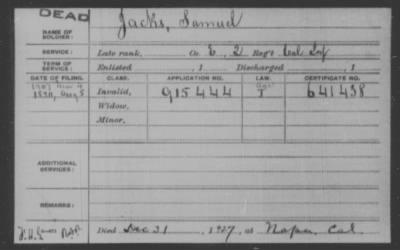 DEAD
NAME OF SOLDIER: Jacks, Samuel
SERVICE: Late rank, Co. E, 2 Reg't Cal Inf
TERM OF SERVICE: Enlisted , 1 Discharged , 1
DATE OF FILING. CLASS. APPLICATION NO. LAW. CERTIFICATE NO.
1890, Aug 5 Invalid, 915444 641438
Widow,
Minor,
ADDITIONAL SERVICES:
REMARKS:
Died Dec 31, 1927, at Napa, Cal.